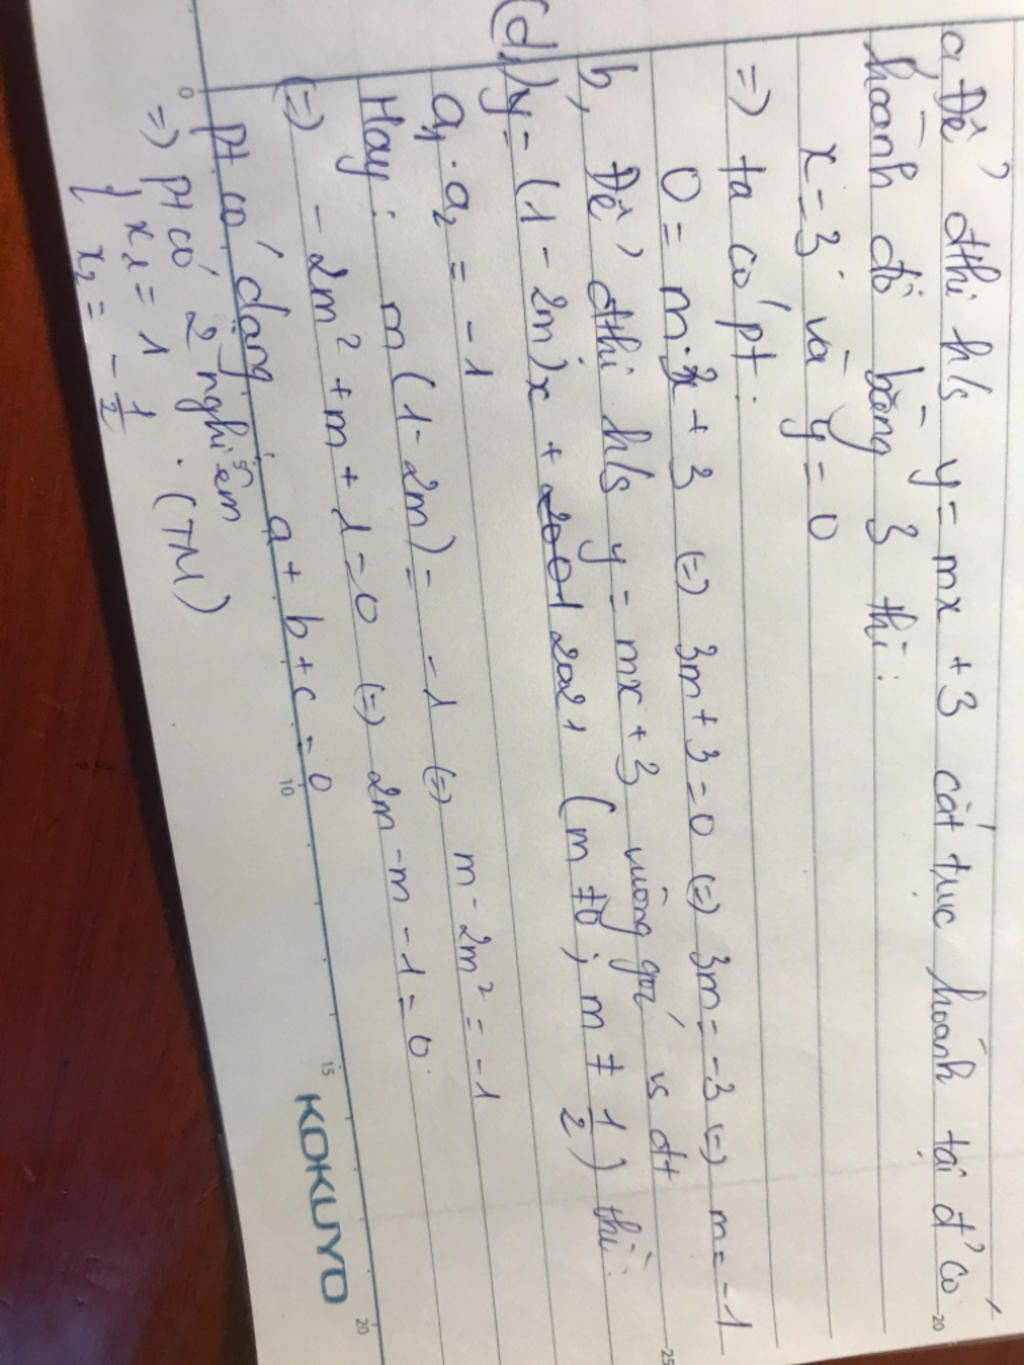 a, Để đthị h/s y = mx + 3 cắt trục hoành tại đ' có
hoành độ bằng 3 thì:
x = 3 và y = 0
=> ta có pt:
0 = m.3 + 3 (=) 3m + 3 = 0 (=) 3m = -3 (=) m = -1
b, Để đthị h/s y = mx + 3 vuông góc vs đt
(d1) y = (1 - 2m)x + 2001 2021 (m ≠ 0; m ≠ 1/2) thì:
a1 . a2 = -1
Hay: m (1 - 2m) = -1 (=) m - 2m² = -1
(=) - 2m² + m + 1 = 0 (=) 2m - m - 1 = 0.
Pt có dạng: a + b + c = 0
=> pt có 2 nghiệm
{ x1 = 1
x2 = -1/2 . (TM)
0
10
15
20
KOKUYO
20
25